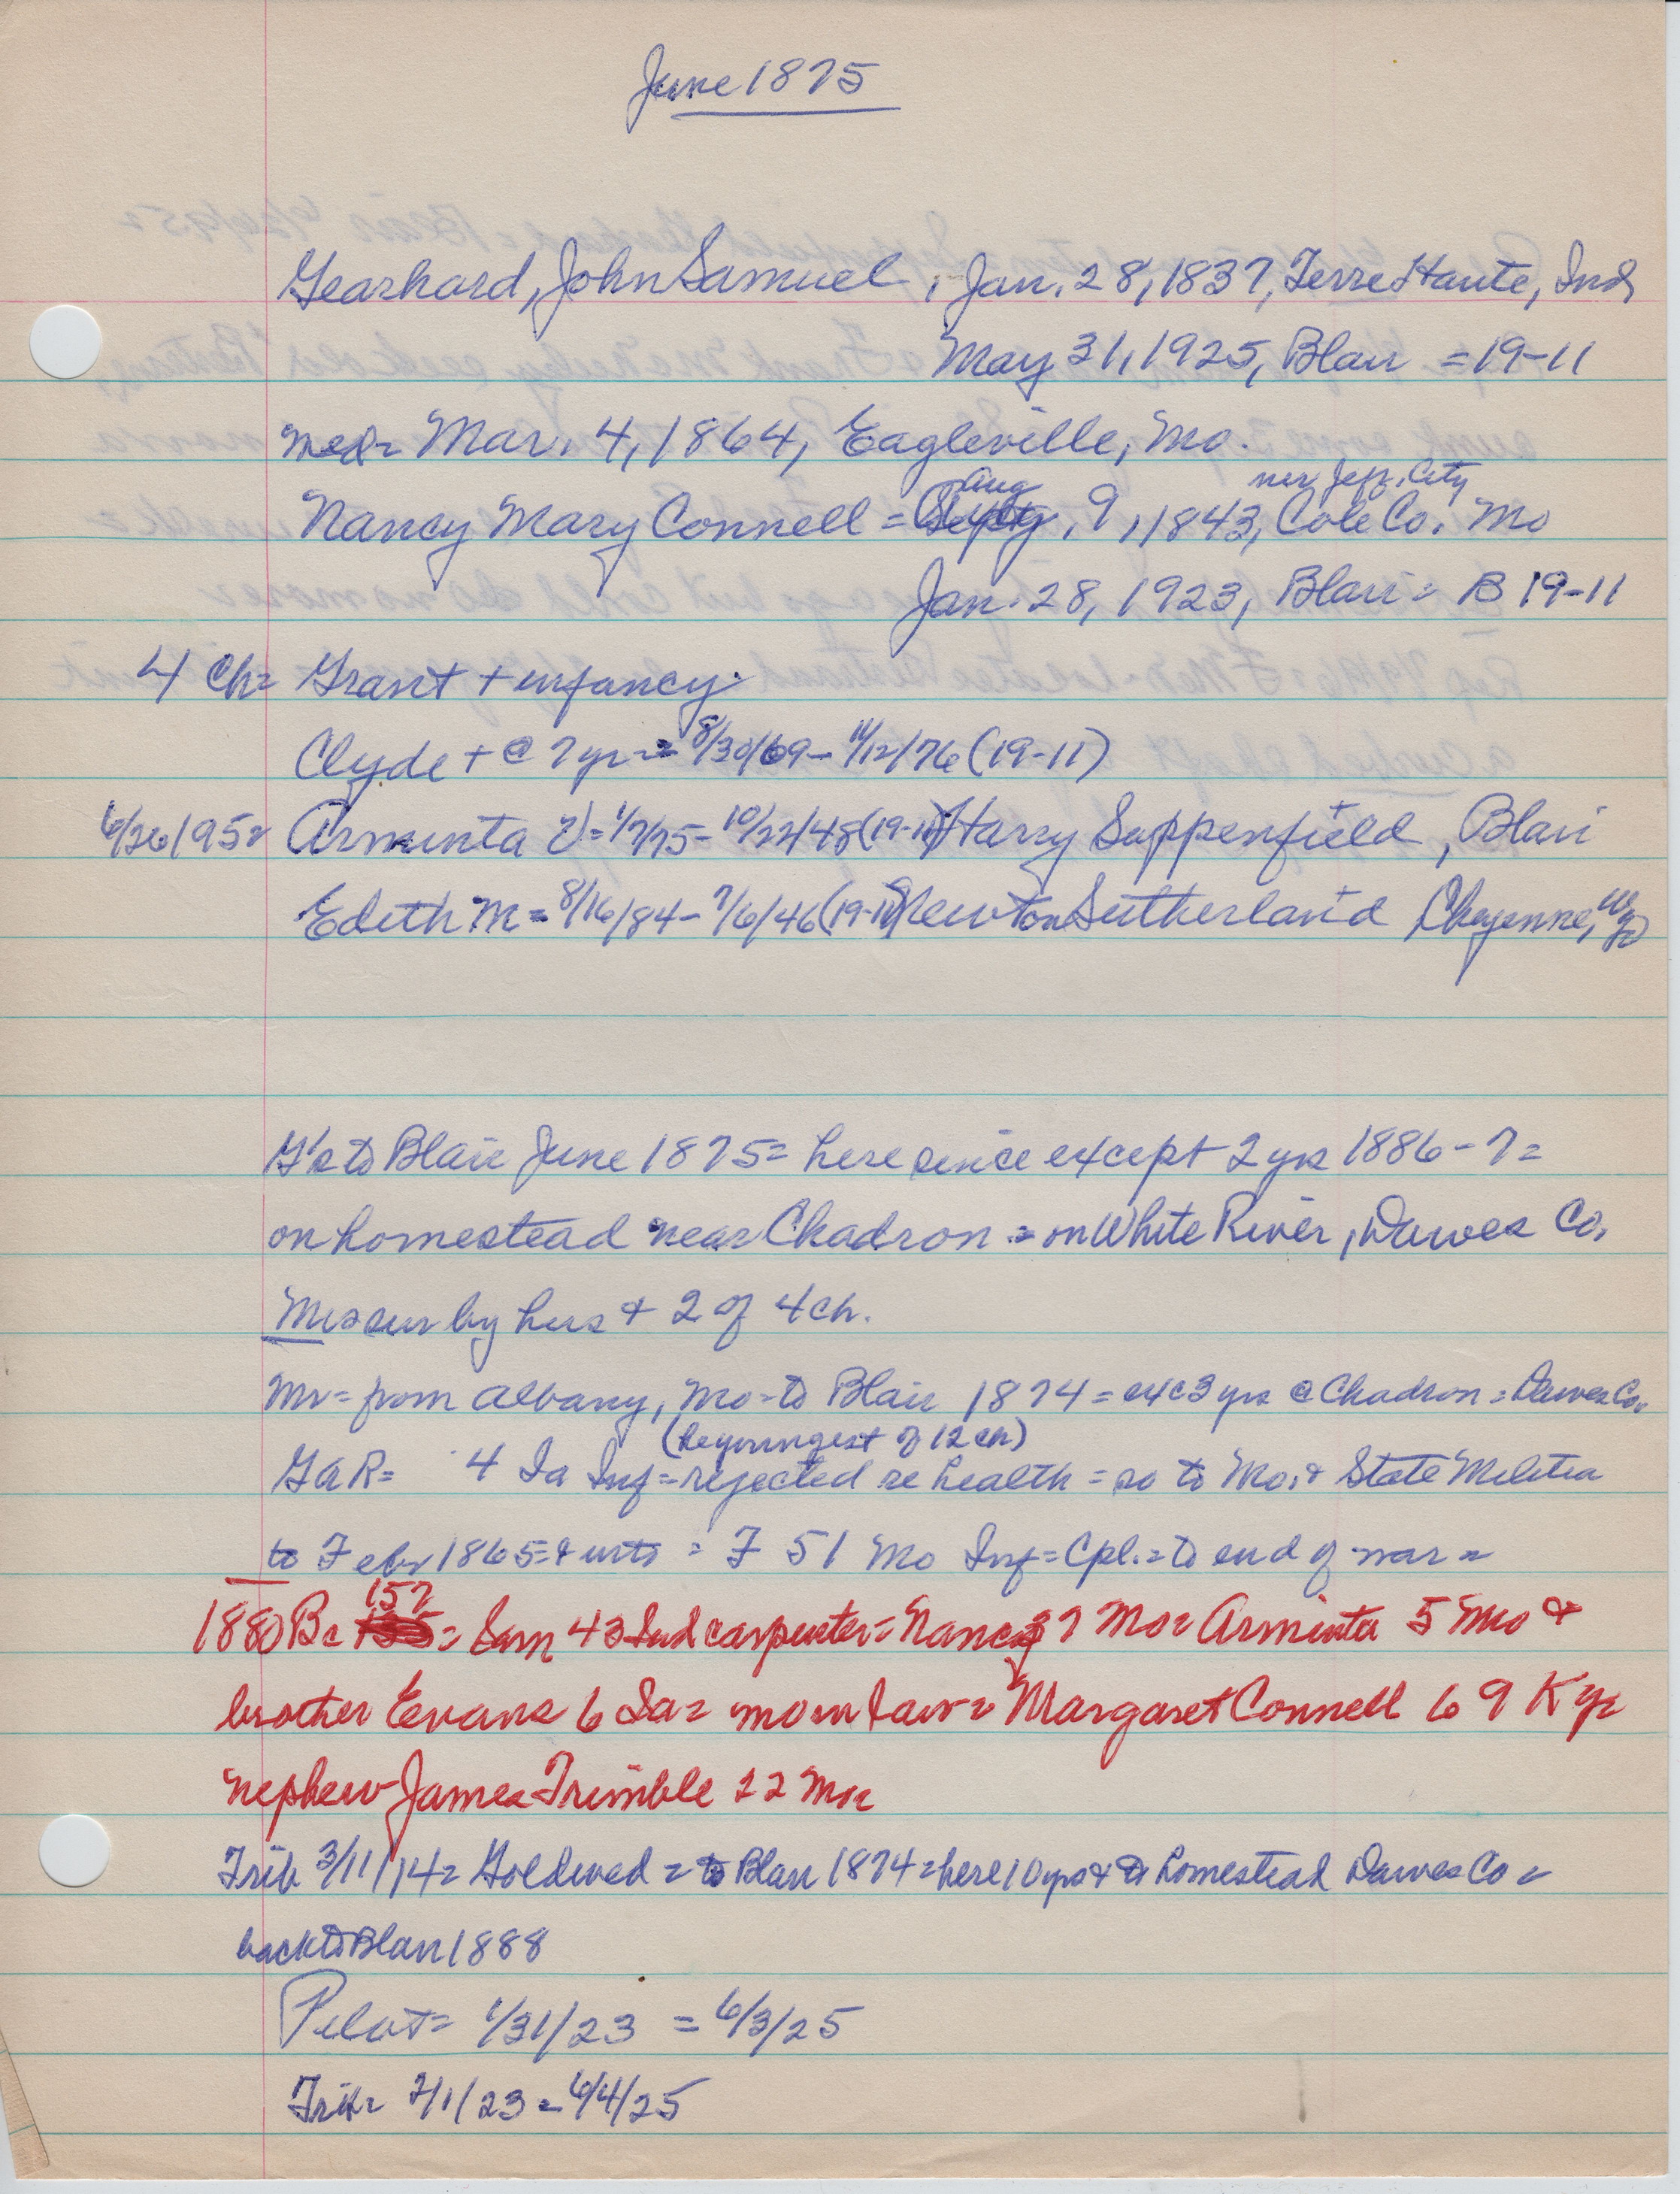 June 1875
Gearhard, John Samuel, Jan. 28, 1837, Terre Haute, Ind
May 31, 1925, Blair = 19-11
med= Mar. 4, 1864, Eagleville, Mo.
Aug near Jeff. City
Nancy Mary Connell = 9, 1843, Cole Co. Mo
Jan. 28, 1923, Blair = B 19-11
4 Ch= Grant + infancy.
Clyde + @ 7 yr = 8/30/69 - 11/12/76 (19-11)
6/26/95= Arminta V = 1/7/75 - 10/22/48 (19-11) Harry Suppenfield, Blair
Edith M = 8/16/84 - 7/6/46 (19-11) Newton Sutherland Cheyenne, Wy
G's to Blair June 1875 = here since except 2 yrs 1886-7 =
on homestead near Chadron = on White River, Dawes Co.
Mrs sur by hus + 2 of 4 ch.
Mr = from Albany, Mo - to Blair 1874 = exc 3 yrs @ Chadron = Dawes Co.
(he youngest of 12 ch)
GAR = 4 Ia Inf = rejected re health = so to Mo. & State Militia
to Febr 1865 = & into = F 51 Mo Inf = Cpl. = to end of war =
157
1880 B = = Sam 43 Ind carpenter = Nancy 37 Mo = Arminta 5 Mo &
brother Evans 6 Ia = mo in law = Margaret Connell 69 Ky =
nephew James Trimble 22 Mo =
Trib 3/11/14 = Gold wed = to Blair 1874 = here 10 yrs & to homestead Dawes Co =
back to Blair 1888
Pilot = 1/31/23 = 6/3/25
Trib = 2/1/23 = 6/4/25